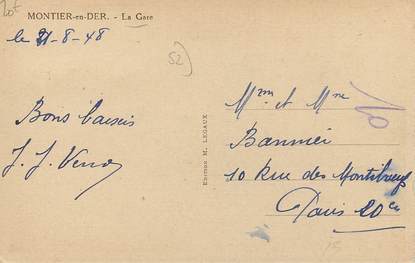 20f
MONTIER-en-DER. - La Gare
le 21-8-48
52
Bons baisers
J. J.
Mme et Mme
10 Rue des Montibœufs
Paris 20e
EDITION M. LEGAUX